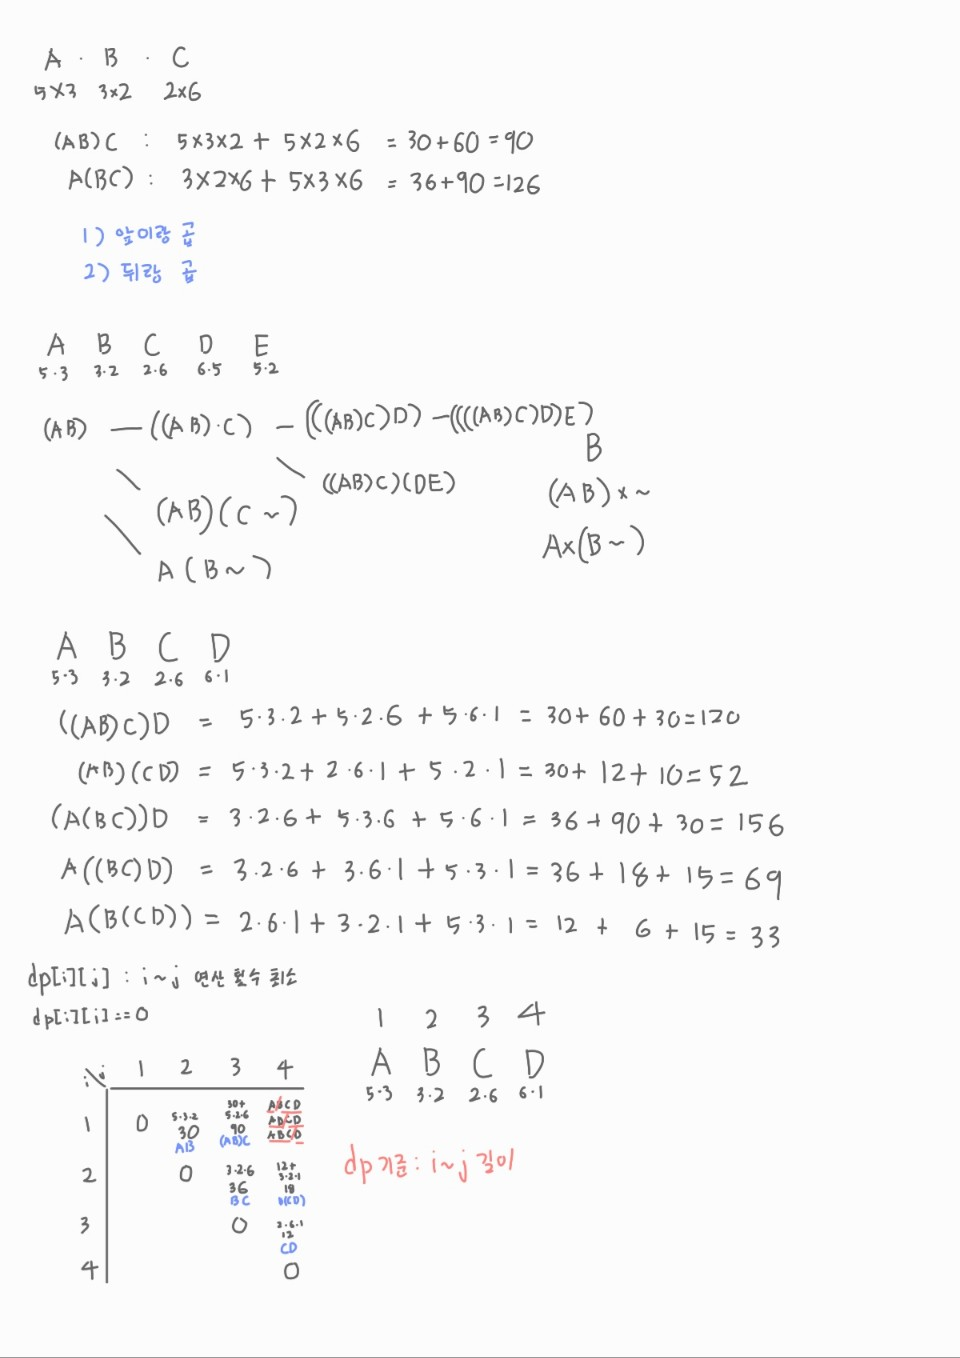 A · B · C
5×3 3×2 2×6
(AB)C : 5×3×2 + 5×2×6 = 30+60 = 90
A(BC) : 3×2×6 + 5×3×6 = 36+90 = 126
1) 앞이랑 곱
2) 뒤랑 곱
A B C D E
5·3 3·2 2·6 6·5 5·2
(AB) — ((AB)·C) — (((AB)C)D) — ((((AB)C)D)E)
B
((AB)C)(DE)
(AB)×~
(AB)(C~)
A×(B~)
A(B~)
A B C D
5·3 3·2 2·6 6·1
((AB)C)D = 5·3·2 + 5·2·6 + 5·6·1 = 30+60+30=120
(AB)(CD) = 5·3·2 + 2·6·1 + 5·2·1 = 30+12+10=52
(A(BC))D = 3·2·6 + 5·3·6 + 5·6·1 = 36+90+30=156
A((BC)D) = 3·2·6 + 3·6·1 + 5·3·1 = 36+18+15=69
A(B(CD)) = 2·6·1 + 3·2·1 + 5·3·1 = 12 + 6 + 15 = 33
dp[i][j] : i~j 연산 횟수 최소
dp[i][i] == 0
1 2 3 4
A B C D
5·3 3·2 2·6 6·1
i\j 1 2 3 4
1 0 5·3·2 30 AB 30+ 5·2·6 90 (AB)C ABCD ABCD ABCD
2 0 3·2·6 36 BC 12+ 3·2·1 18 B(CD)
3 0 2·6·1 12 CD
4 0
dp 기준 : i~j 길이